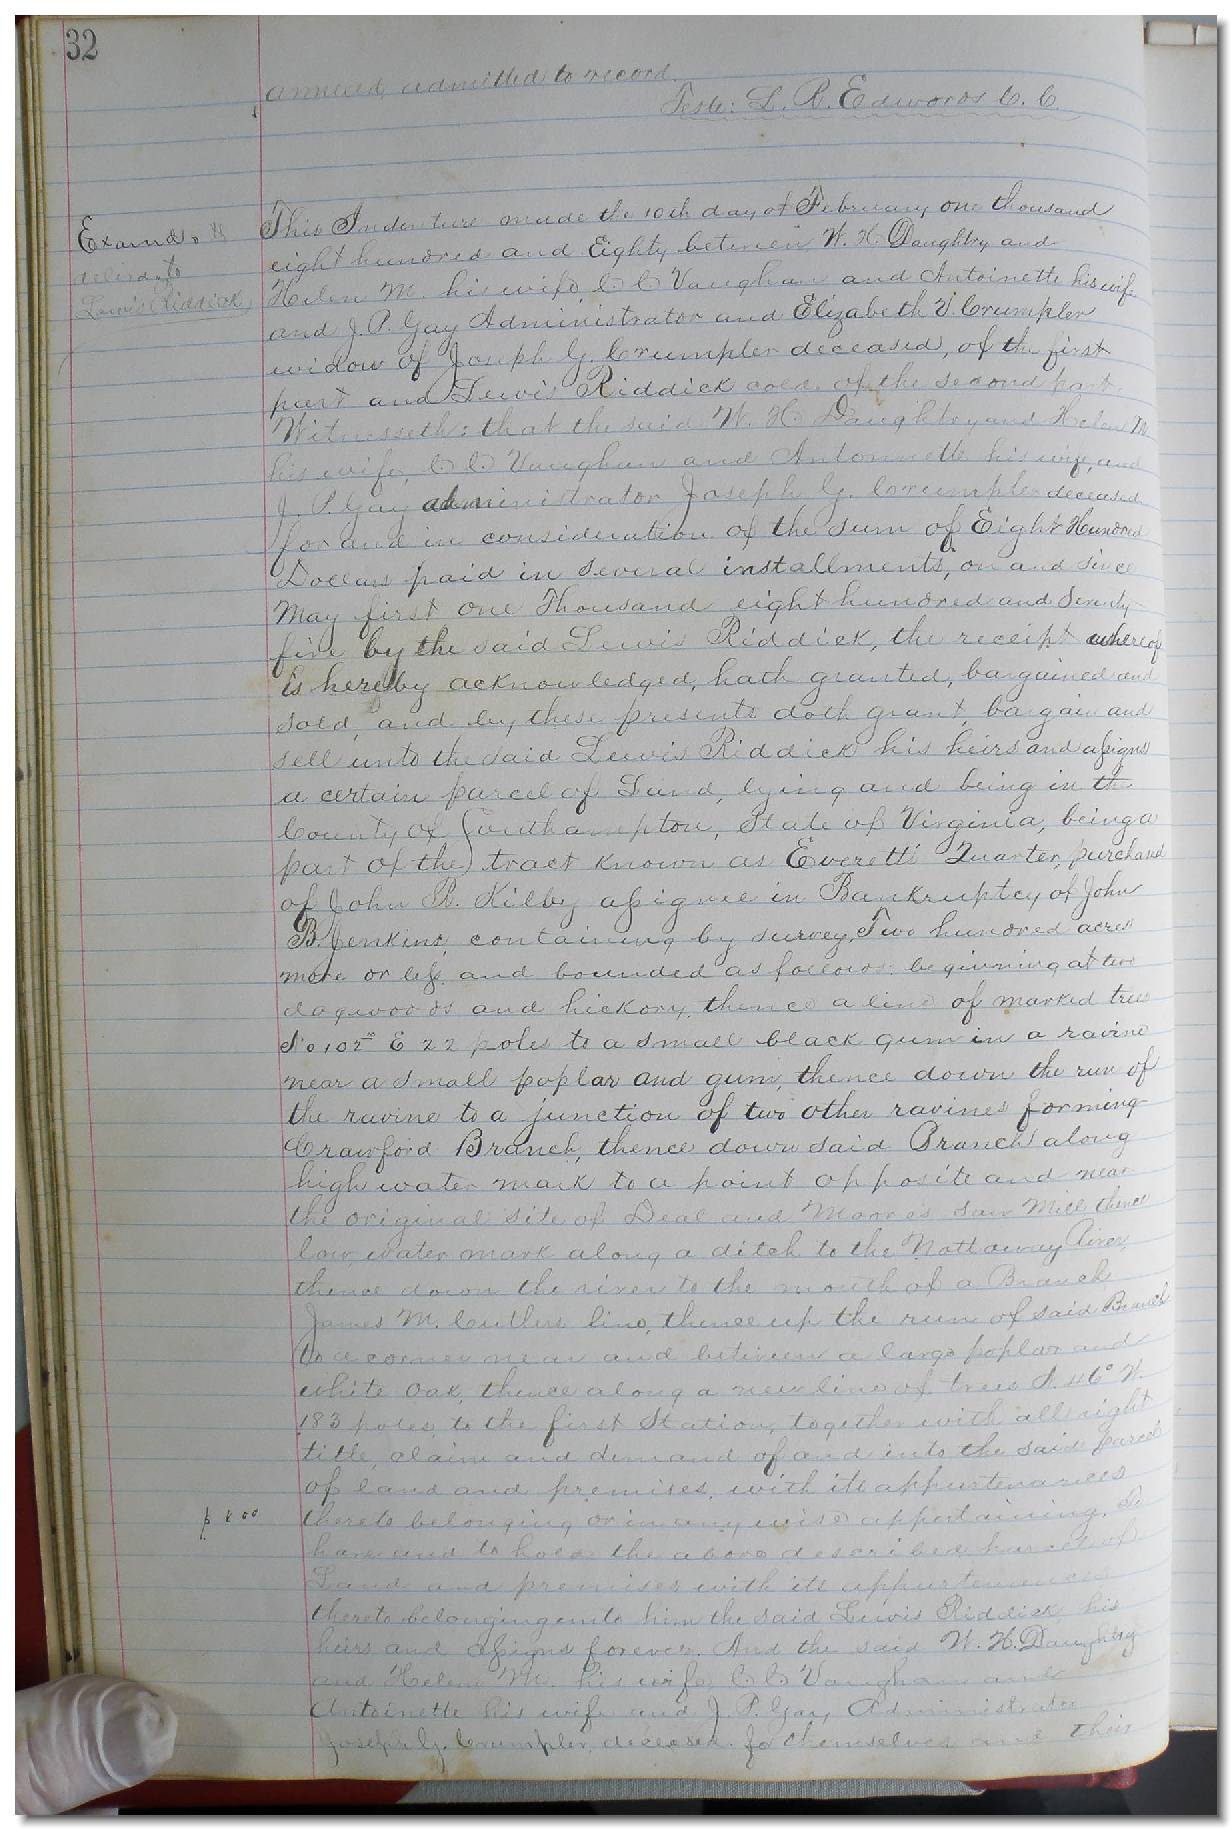 32
annexed, admitted to record.
Teste: L. R. Edwards C. C.
Examd. &
delivd. to
Lewis Riddick
This Indenture made the 10th day of February one thousand
eight hundred and Eighty between W. H. Daughtry and
Helen M his wife, C C Vaughan and Antoinette his wife
and J. P. Gay Administrator and Elizabeth V. Crumpler
widow of Joseph G. Crumpler deceased, of the first
part and Lewis Riddick cold. of the second part.
Witnesseth: that the said W. H Daughtry and Helen M
his wife, C C Vaughan and Antoinette his wife, and
J. P. Gay administrator Joseph G. Crumpler deceased
for and in consideration of the sum of Eight Hundred
Dollars paid in several installments, on and since
May first one Thousand eight hundred and Seventy
five by the said Lewis Riddick, the receipt whereof
is hereby acknowledged, hath granted, bargained and
sold, and by these presents doth grant, bargain and
sell unto the said Lewis Riddick his heirs and assigns
a certain parcel of Land, lying and being in the
County of Southampton, State of Virginia, being a
part of the tract known as Everetts Quarter, purchased
of John R. Kilby assignee in Bankruptcy of John
B. Jenkins, containing by survey, Two hundred acres
more or less, and bounded as follows: beginning at two
dogwoods and hickory, thence a line of marked trees
E 22 poles to a small black gum in a ravine
near a small poplar and gum, thence down the run of
the ravine to a junction of two other ravines forming
Crawford Branch, thence down said Branch along
high water mark to a point opposite and near
the original site of Deal and Marr's Saw Mill thence
low water mark along a ditch to the Nottoway River,
thence down the river to the mouth of a Branch
James M. Cutlers line, thence up the run of said Branch
to a corner near and between a large poplar and
white oak, thence along a new line of trees S. 46° W.
183 poles, to the first Station, together with all right
title, claim and demand of and into the said parcel
of land and premises, with its appurtenances
$ 800
thereto belonging or in any wise appertaining. To
have and to hold the above described parcel of
Land and premises with its appurtenances
thereto belonging unto him the said Lewis Riddick his
heirs and assigns forever. And the said W. H. Daughtry
and Helen M. his wife C C Vaughan and
Antoinette his wife and J. P. Gay, Administrator
Joseph G. Crumpler, deceased. for themselves and their